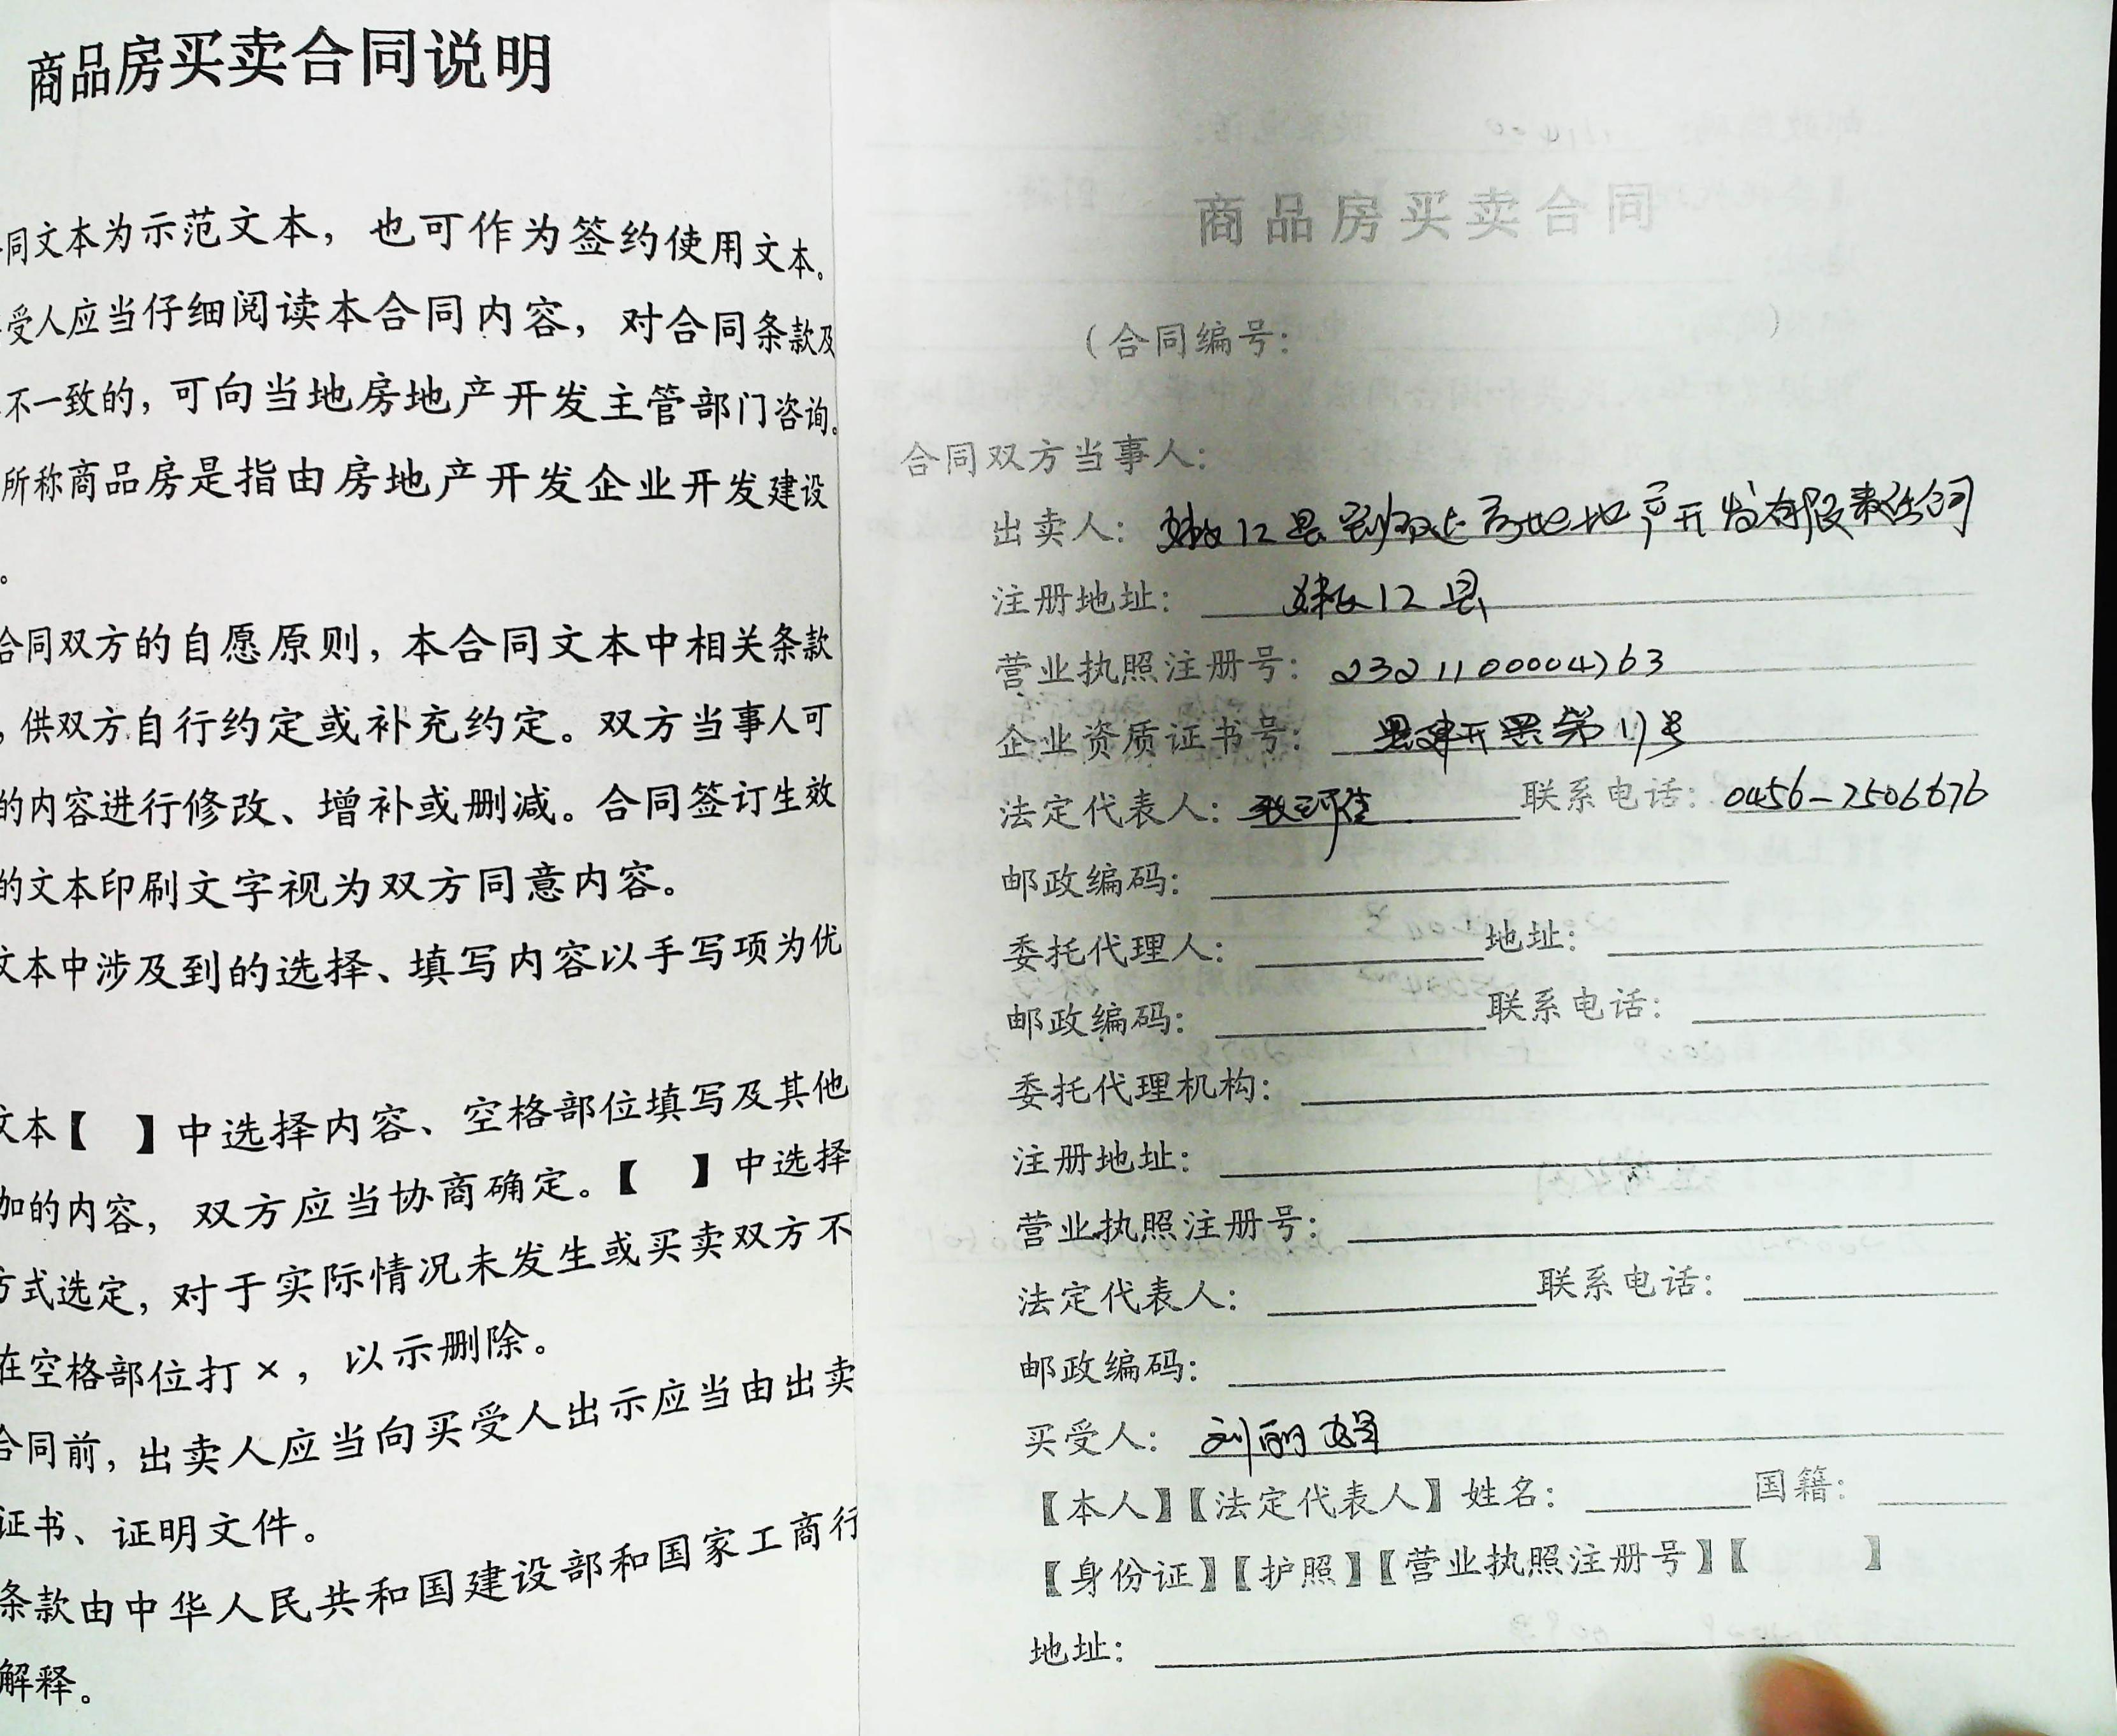 商品房买卖合同说明
同文本为示范文本，也可作为签约使用文本。
受人应当仔细阅读本合同内容，对合同条款及
不一致的，可向当地房地产开发主管部门咨询。
所称商品房是指由房地产开发企业开发建设
。
合同双方的自愿原则，本合同文本中相关条款
，供双方自行约定或补充约定。双方当事人可
的内容进行修改、增补或删减。合同签订生效
的文本印刷文字视为双方同意内容。
文本中涉及到的选择、填写内容以手写项为优
文本【 】中选择内容、空格部位填写及其他
加的内容，双方应当协商确定。【 】中选择
方式选定，对于实际情况未发生或买卖双方不
在空格部位打×，以示删除。
合同前，出卖人应当向买受人出示应当由出卖
证书、证明文件。
条款由中华人民共和国建设部和国家工商行
解释。
商品房买卖合同
（合同编号： ）
合同双方当事人：
出卖人：嫩江县 房地产开发有限责任公司
注册地址：嫩江县
营业执照注册号：2321100004763
企业资质证书号：黑建开黑第17号
法定代表人： 联系电话：0456-7506676
邮政编码：
委托代理人： 地址：
邮政编码： 联系电话：
委托代理机构：
注册地址：
营业执照注册号：
法定代表人： 联系电话：
邮政编码：
买受人：刘丽娟
【本人】【法定代表人】姓名： 国籍：
【身份证】【护照】【营业执照注册号】【 】
地址：